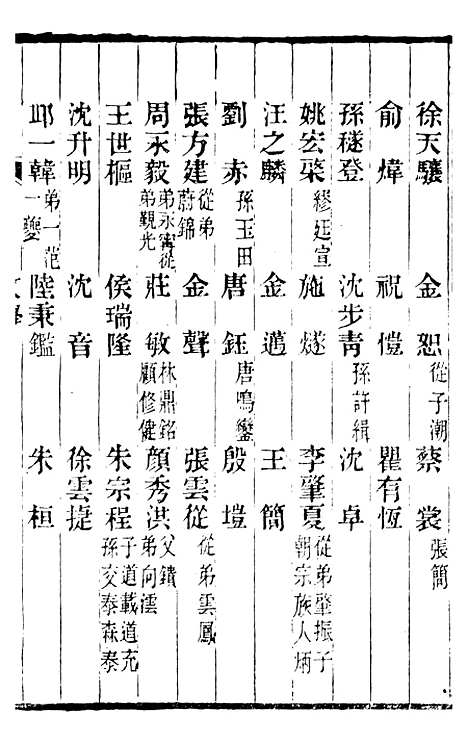 徐天驤　金恕從子潮　蔡裳張簡
俞煒　祝愷　瞿有恆
孫䅿登　沈步靑孫許緝　沈卓
姚宏棨繆廷宣　施燧　李肇夏從弟肇振子朝宗族人炳
汪之麟　金邁　王簡
劉赤孫玉田　唐鈺唐鳴鑾　殷塏
張方建從弟蔚錦　金聲　張雲從從弟雲鳳
周永毅弟永甯從弟觀光　莊敏林鼎銘顧修健　顏秀洪父鐀弟向澐
王世樞　侯瑞隆　朱宗程子道載道充孫交泰森泰
沈升明　沈音　徐雲捷
邱一韓弟一范一夔　陸秉鑑　朱桓